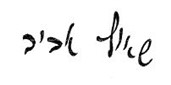 שאול אביב